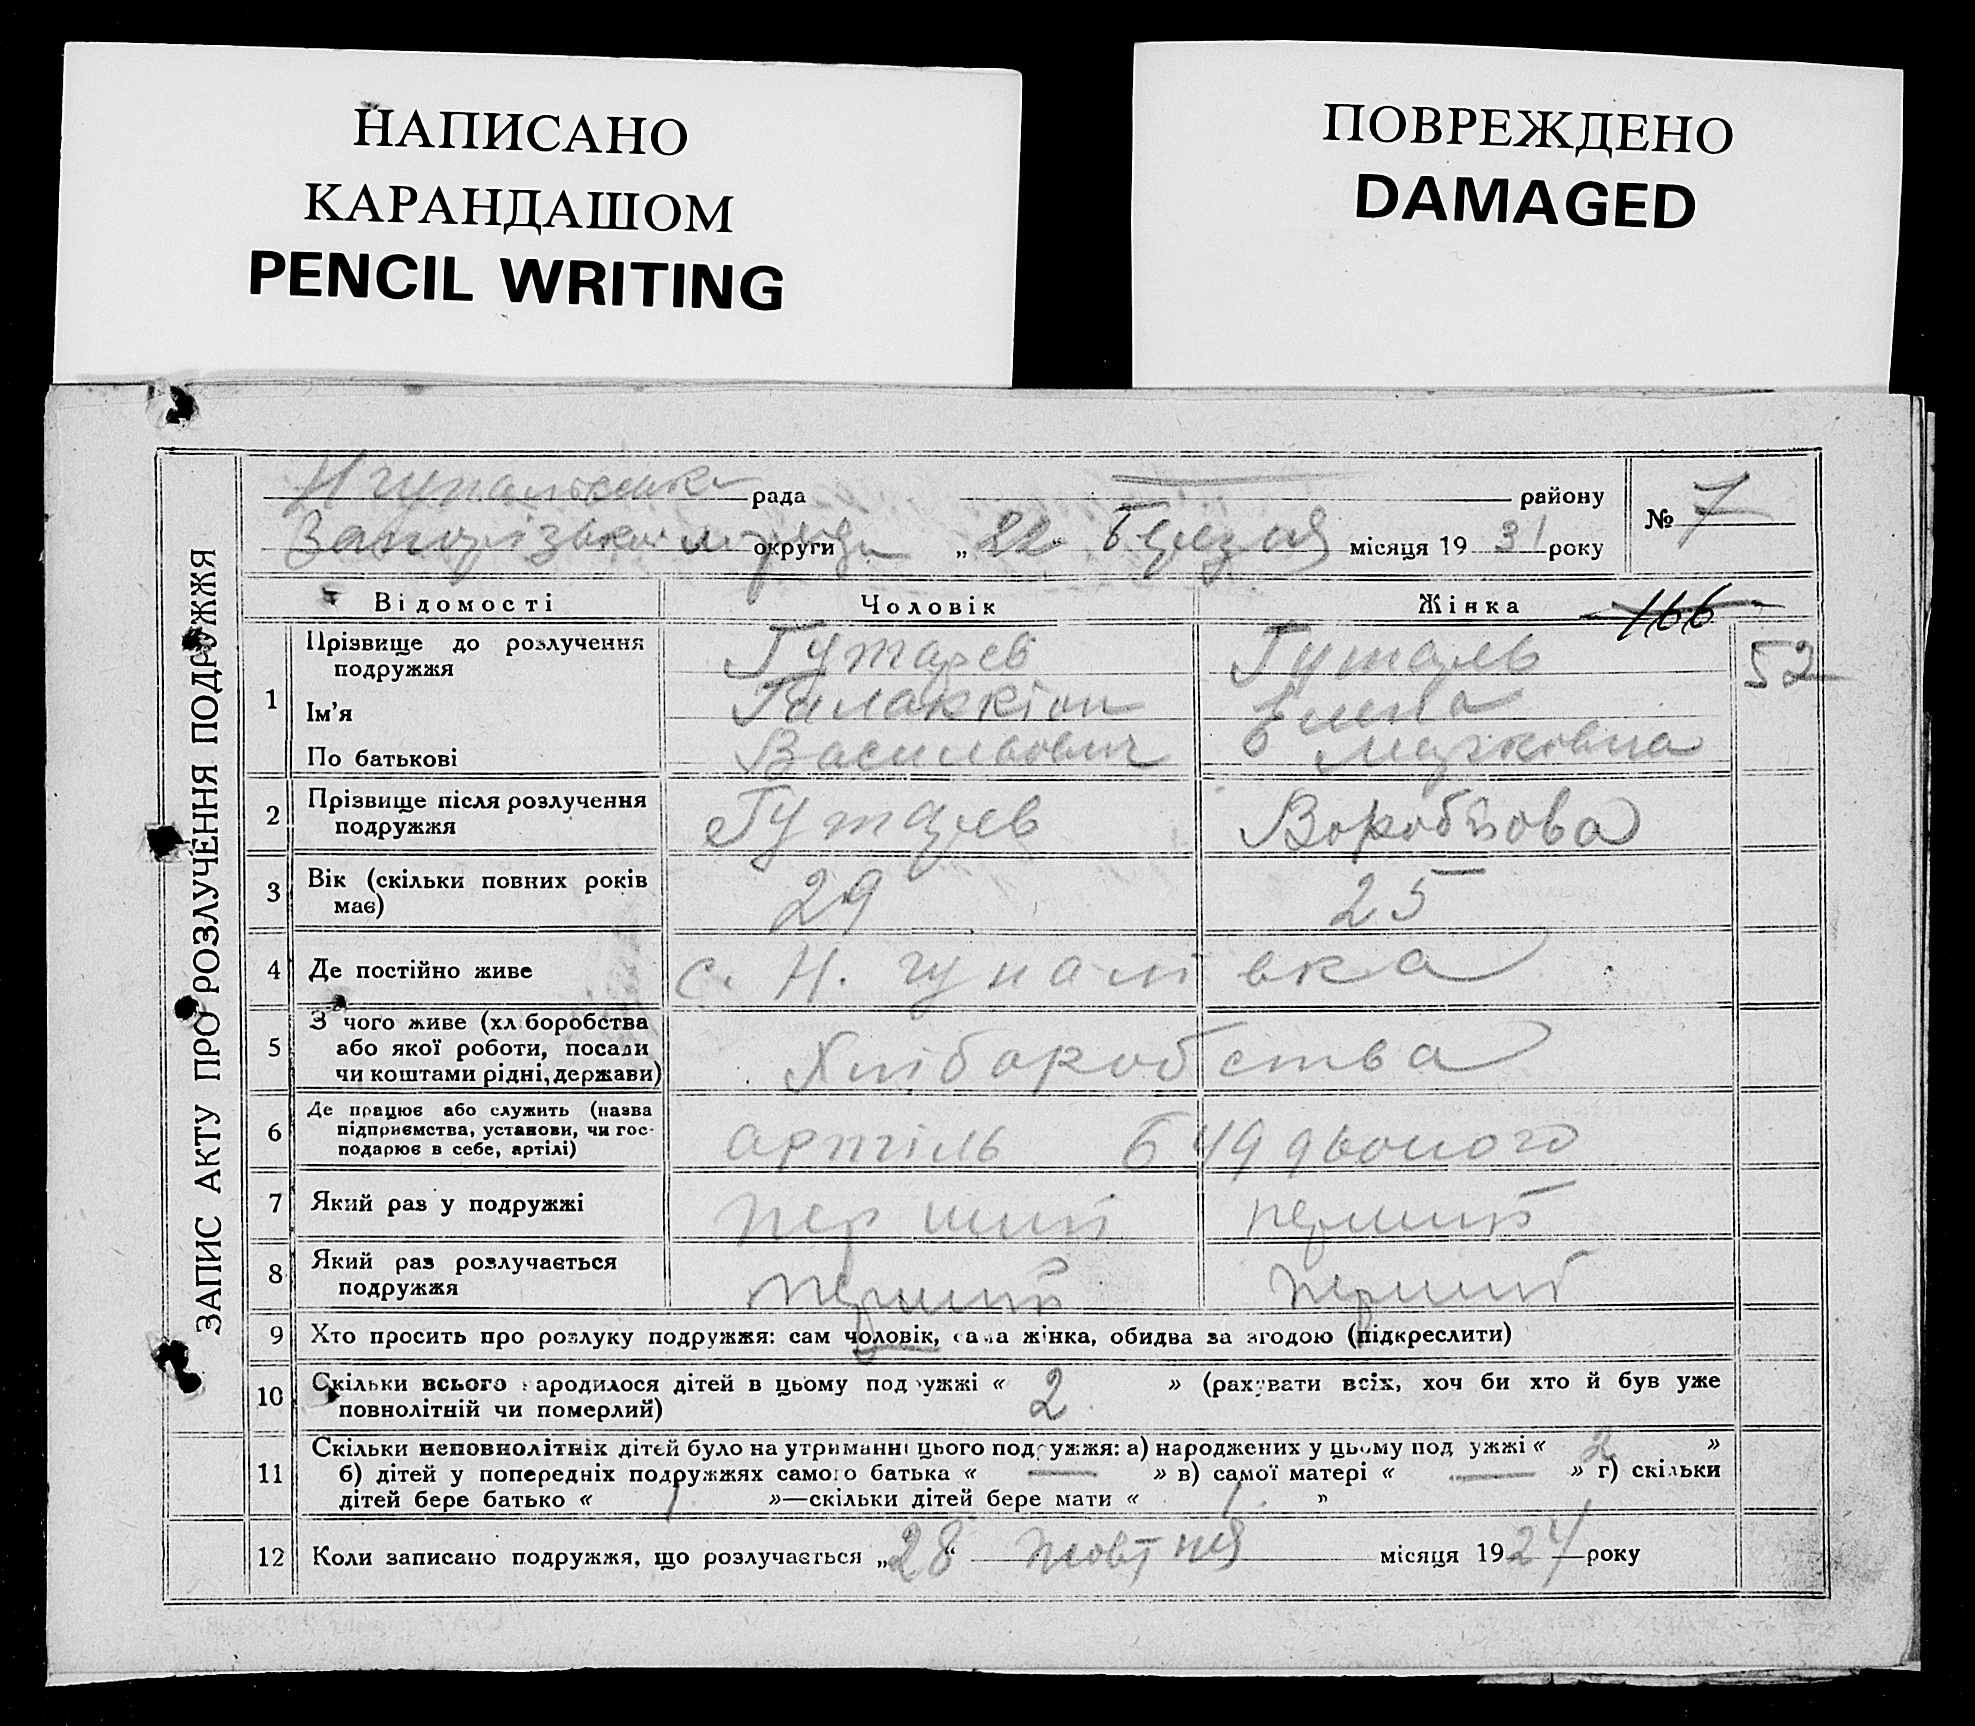 НАПИСАНО
КАРАНДАШОМ
PENCIL WRITING
ПОВРЕЖДЕНО
DAMAGED
ЗАПИС АКТУ ПРО РОЗЛУЧЕННЯ ПОДРУЖЖЯ
рада району
округи „22“ Березня місяця 1931 року
№ 7
Відомості Чоловік Жінка 166
52
1 Прізвище до розлучення подружжя Гутарев Гутарев
Ім'я Галактіон Елена
По батькові Васильович Марковна
2 Прізвище після розлучення
подружжя Гутарев Воробйова
3 Вік (скільки повних років
має) 29 25
4 Де постійно живе с. Н. гупалівка
5 З чого живе (хліборобства
або якої роботи, посади
чи коштами рідні, держави) Хліборобства
6 Де працює або служить (назва
підприємства, установи, чи гос-
подарює в себе, артілі) артіль Буддьоного
7 Який раз у подружжі перший перший
8 Який раз розлучається
подружжя перший перший
9 Хто просить про розлуку подружжя: сам чоловік, сама жінка, обидва за згодою (підкреслити)
10 Скільки всього народилося дітей в цьому подружжі « 2 » (рахувати всіх, хоч би хто й був уже
повнолітній чи померлий)
11 Скільки неповнолітніх дітей було на утриманні цього подружжя: а) народжених у цьому подружжі « 2 »
б) дітей у попередніх подружжях самого батька « — » в) самої матері « — » г) скільки
дітей бере батько « 1 »—скільки дітей бере мати « 1 »
12 Коли записано подружжя, що розлучається „28“ жовтня місяця 1924 року